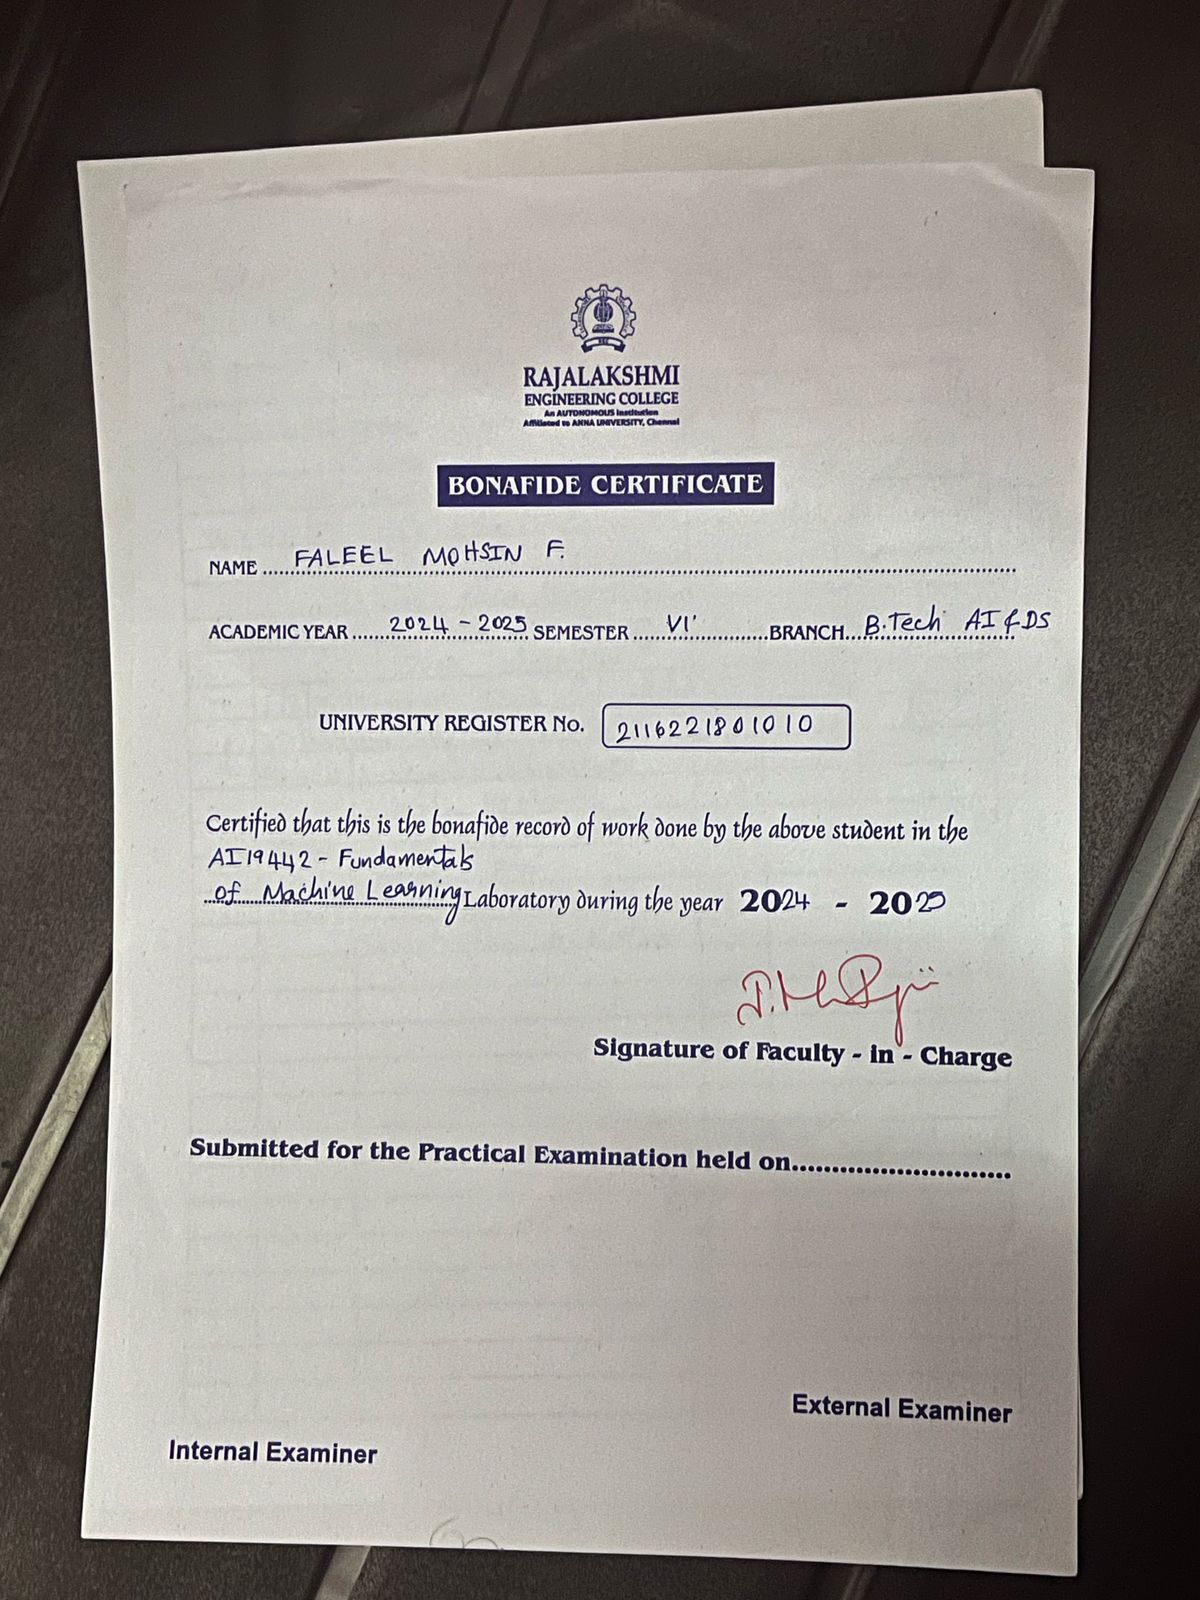 RAJALAKSHMI
ENGINEERING COLLEGE
An AUTONOMOUS Institution
Affiliated to ANNA UNIVERSITY, Chennai
BONAFIDE CERTIFICATE
NAME FALEEL MOHSIN F.
ACADEMIC YEAR 2024 - 2025 SEMESTER VI BRANCH B.Tech AI & DS
UNIVERSITY REGISTER No. 2116221801010
Certified that this is the bonafide record of work done by the above student in the
AI19442 - Fundamentals
of Machine Learning Laboratory during the year 2024 - 2025
Signature of Faculty - in - Charge
Submitted for the Practical Examination held on
External Examiner
Internal Examiner